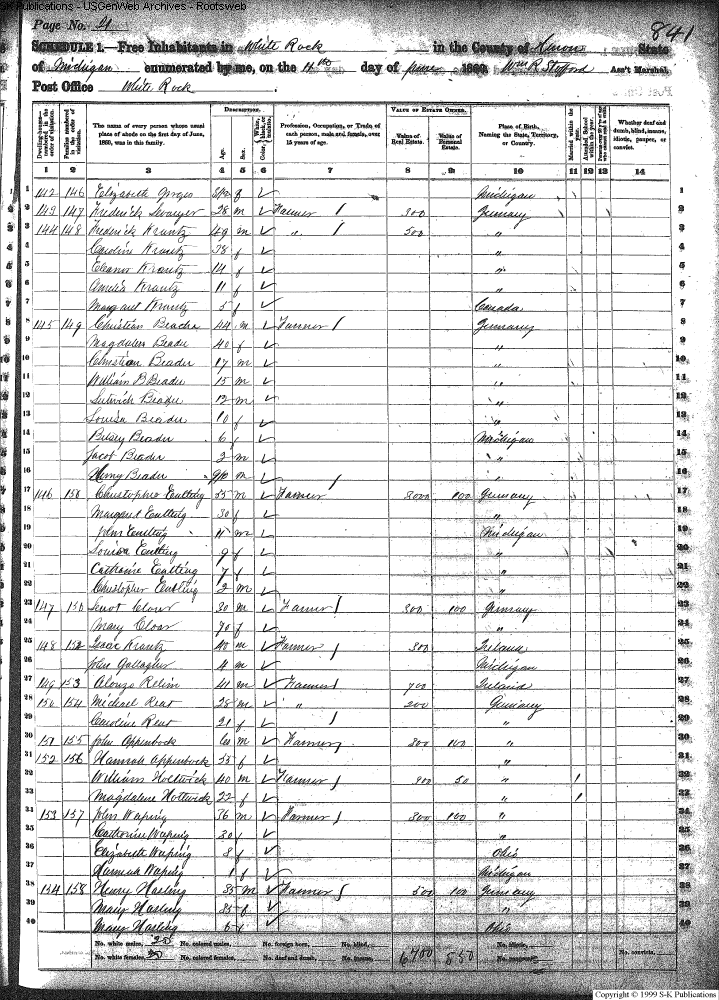 S-K Publications - USGenWeb Archives - Rootsweb
Page No. 21
841
SCHEDULE 1.—Free Inhabitants in White Rock in the County of Huron State
of Michigan enumerated by me, on the 11th day of June 1860. Wm R. Stafford Ass't Marshal.
Post Office White Rock
Dwelling-houses—numbered in the order of visitation. Families numbered in the order of visitation. The name of every person whose usual place of abode on the first day of June, 1860, was in this family. DESCRIPTION. Age. Sex. Color, White, black, or mulatto. Profession, Occupation, or Trade of each person, male and female, over 15 years of age. VALUE OF ESTATE OWNED. Value of Real Estate. Value of Personal Estate. Place of Birth, Naming the State, Territory, or Country. Married within the year. Attended School within the year. Whether deaf and dumb, blind, insane, idiotic, pauper, or convict.
1 2 3 4 5 6 7 8 9 10 11 12 13 14
1 142 146 Elizabeth f ✓ Michigan 1
2 143 147 Frederick 28 m ✓ Farmer / 300 Germany 2
3 144 148 Frederick Krantz 49 m ✓ " / 500 " 3
4 Caroline Krantz 38 f ✓ " 4
5 Eleanor Krantz 14 f ✓ " 5
6 Amelia Krantz 11 f ✓ " 6
7 Margaret Krantz 5 f ✓ Canada 7
8 145 149 Christian 44 m ✓ Farmer / Germany 8
9 Magdalena Beader 40 f ✓ " 9
10 Christian Beader 17 m ✓ " 10
11 William B Beader 15 m ✓ " 11
12 Beader 12 m ✓ " 12
13 Louisa Beader 10 f ✓ " 13
14 Betsey Beader 6 f ✓ Michigan 14
15 Jacob Beader 2 m ✓ " 15
16 Henry Beader m ✓ " 16
17 146 150 Christopher Eulting 35 m ✓ Farmer / 3000 100 Germany 17
18 Margaret Eulting 30 f ✓ " 18
19 John Eulting 11 m ✓ Michigan 19
20 Louisa Eulting 9 f ✓ " 20
21 Catharine Eulting 7 f ✓ " 21
22 Christopher Eulting 2 m ✓ " 22
23 147 150 30 m ✓ Farmer / 300 100 Germany 23
24 Mary f ✓ " 24
25 148 152 Isaac Krantz 40 m ✓ Farmer / 300 Ireland 25
26 John Gallagher 4 m ✓ Michigan 26
27 149 153 Alonzo 41 m ✓ Farmer / 700 Ireland 27
28 150 154 Michael 28 m ✓ " 200 Germany 28
29 Caroline 21 f ✓ / " 29
30 151 155 John Appenbock 60 m ✓ Farmer / 300 100 " 30
31 152 156 Hannah Appenbock 55 f ✓ " 31
32 William Holtwick 40 m ✓ Farmer / 900 50 " / 32
33 Magdalene Holtwick 22 f ✓ " / 33
34 153 157 John Waping 36 m ✓ Farmer / 300 100 " 34
35 Catharine Waping 30 f ✓ " 35
36 Elizabeth Waping 8 f ✓ Ohio 36
37 Hannah Waping 1 f ✓ Michigan 37
38 154 158 Henry Hasling 35 m ✓ Farmer / 500 100 Germany 38
39 Mary Hasling 35 f ✓ " 39
40 Mary Hasling 6 f ✓ Ohio 40
No. white males, 20 No. colored males, No. foreign born, No. blind, 6700 850 No. idiotic,
No. white females, 20 No. colored females, No. deaf and dumb, No. insane, No. paupers, No. convicts,
Copyright © 1999 S-K Publications